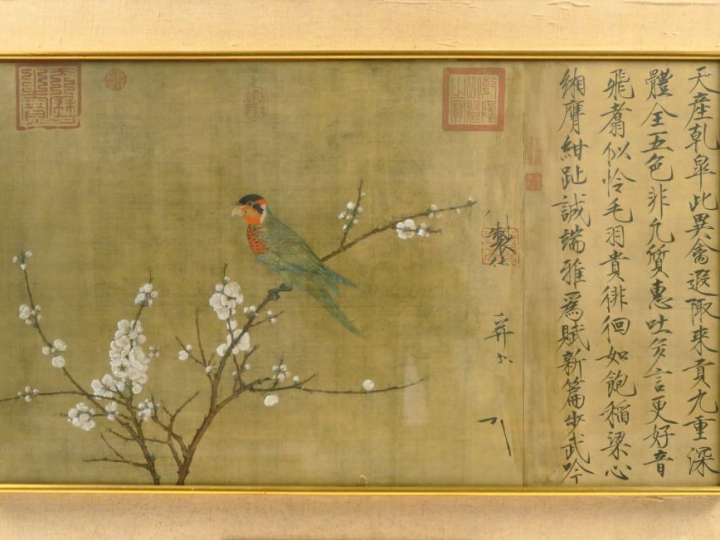 天產乾皋此異禽遐陬來貢九重深
體全五色非凡質惠吐多言更好音
飛翥似怜毛羽貴徘徊如飽稻梁心
緗膺紺趾誠端雅爲賦新篇步武吟
製